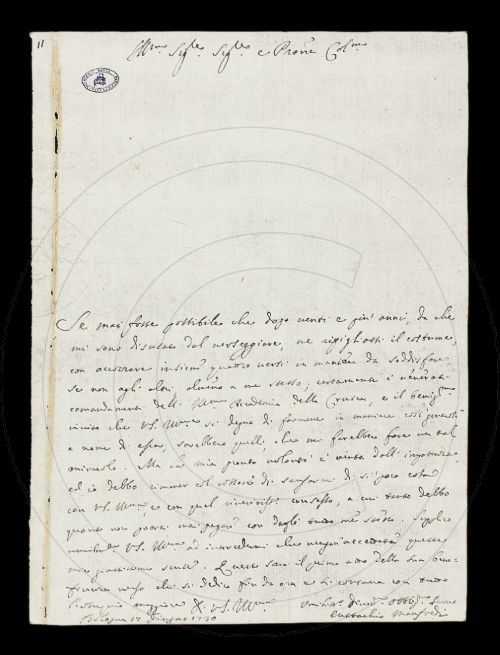 11
Ill.mo Sig.re Sig.re e Prone Col.mo
Se mai fosse possibile che dopo venti e più anni, da che
mi sono disusato dal verseggiare, ne ripigliassi il costume,
con accozzare insieme quattro versi in maniera da soddisfare
se non agli altri, almeno a me stesso, certamente i venerati
comandamenti dell' Ill.ma Accademia della Crusca, e il benig.mo
invito che VS. Ill.ma si degna di farmene in maniere così generose
a nome di essa, sarebbero quelli, che mi farebbero fare un tal
miracolo. Ma la mia pronta volontà è vinta dall' impotenza,
ed io debbo rimaner col rossore di
con VS. Ill.ma, e con quel riverito consesso, a cui tanto debbo
quanto non potrei mai pagare con tutto me stesso. Supplico
VS. Ill.ma ad che queste
mie scuse. E questo sarà il primo atto della sua
verso chi si dedica fin da ora e si con tutto
l'ossequio Di VS. Ill.ma
Bologna 17 Giugno 1730
Umiliss. Divot. Obblig. Serv.
Eustachio Manfredi